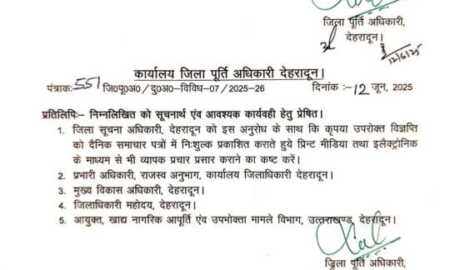 जिला पूर्ति अधिकारी,
देहरादून।
12/6/25
कार्यालय जिला पूर्ति अधिकारी देहरादून।
पंत्राकः 551 जि०पू०अ० / दु०अ०-विविध-07 / 2025-26 दिनांक :-12 जून, 2025
प्रतिलिपिः- निम्नलिखित को सूचनार्थ एंव आवश्यक कार्यवही हेतु प्रेषित।
1. जिला सूचना अधिकारी, देहरादून को इस अनुरोध के साथ कि कृपया उपरोक्त विज्ञप्ति
को दैनिक समाचार पत्रों में निःशुल्क प्रकाशित कराते हुये प्रिन्ट मीडिया तथा इलैक्ट्रोनिक
के माध्यम से भी व्यापक प्रचार प्रसार कराने का कष्ट करें।
2. प्रभारी अधिकारी, राजस्व अनुभाग, कार्यालय जिलाधिकारी देहरादून।
3. मुख्य विकास अधिकारी, देहरादून।
4. जिलाधिकारी महोदय, देहरादून।
5. आयुक्त, खाद्य नागरिक आपूर्ति एंव उपभोक्ता मामले विभाग, उत्तराखण्ड, देहरादून।
जिला पूर्ति अधिकारी,